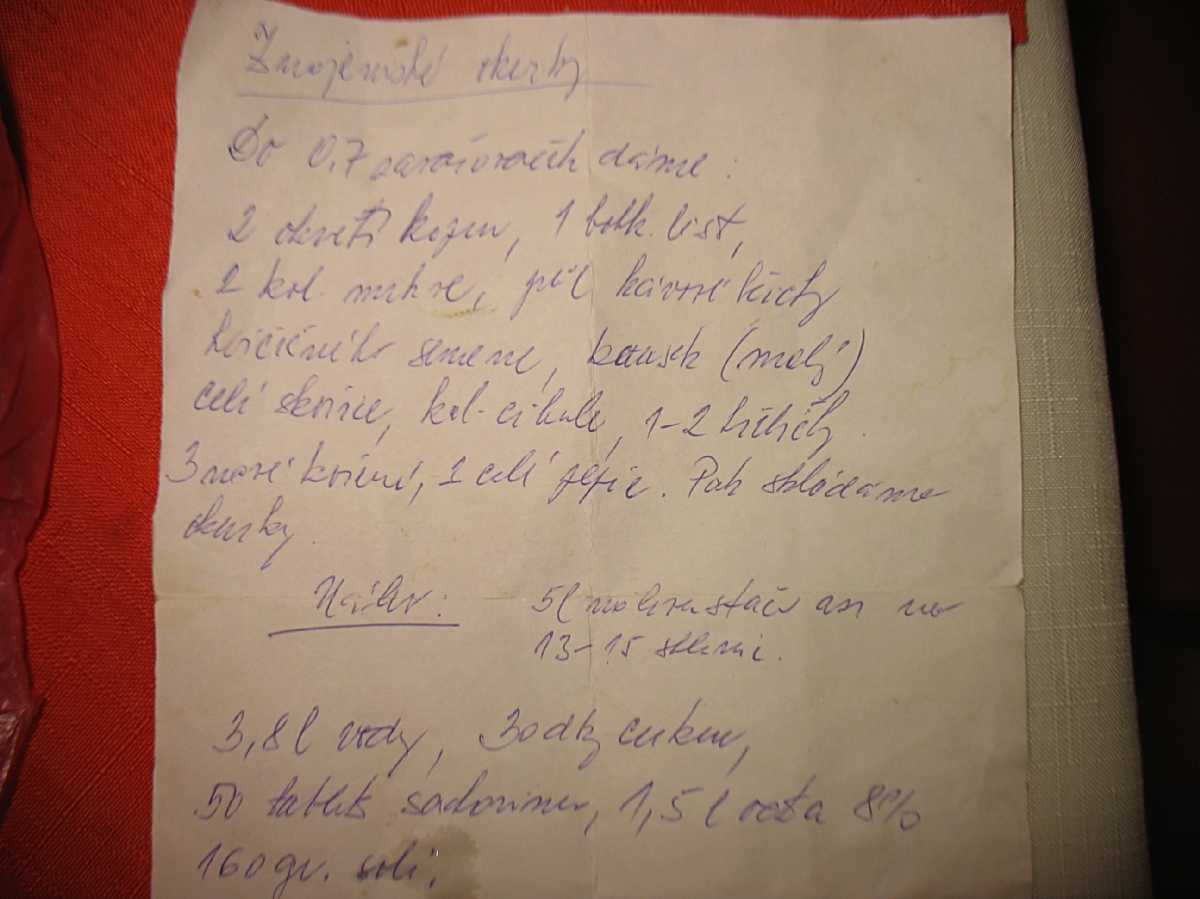 Znojemské okurky
Do 0,7 zavařovacích dáme:
2 okvětí kopru, 1 bobk. list,
2 kol. mrkve, půl kávové lžičky
hořčičného semene, kousek (malý)
celé skořice, kol. cibule, 1-2 hřebíčky
3 nové koření, 1 celý pepře. Pak skládáme
okurky.
Nálev: 5l nálevu stačí asi na
13-15 sklenic.
3,8 l vody, 30 dkg cukru,
50 tablet sacharinu, 1,5 l octa 8%
160 gr. soli.